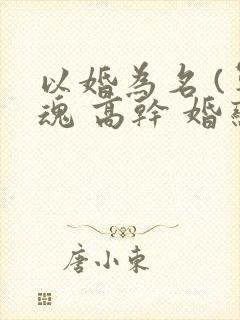 以婚為名(
魂 高幹 婚
唐小東